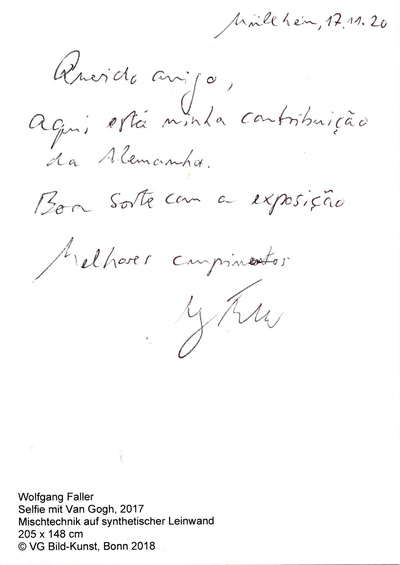 Müllheim, 17.11.20
Querido amigo,
Aqui está minha contribuição
da Alemanha.
Boa sorte com a exposição
Melhores cumprimentos
Wolfgang Faller
Selfie mit Van Gogh, 2017
Mischtechnik auf synthetischer Leinwand
205 x 148 cm
© VG Bild-Kunst, Bonn 2018